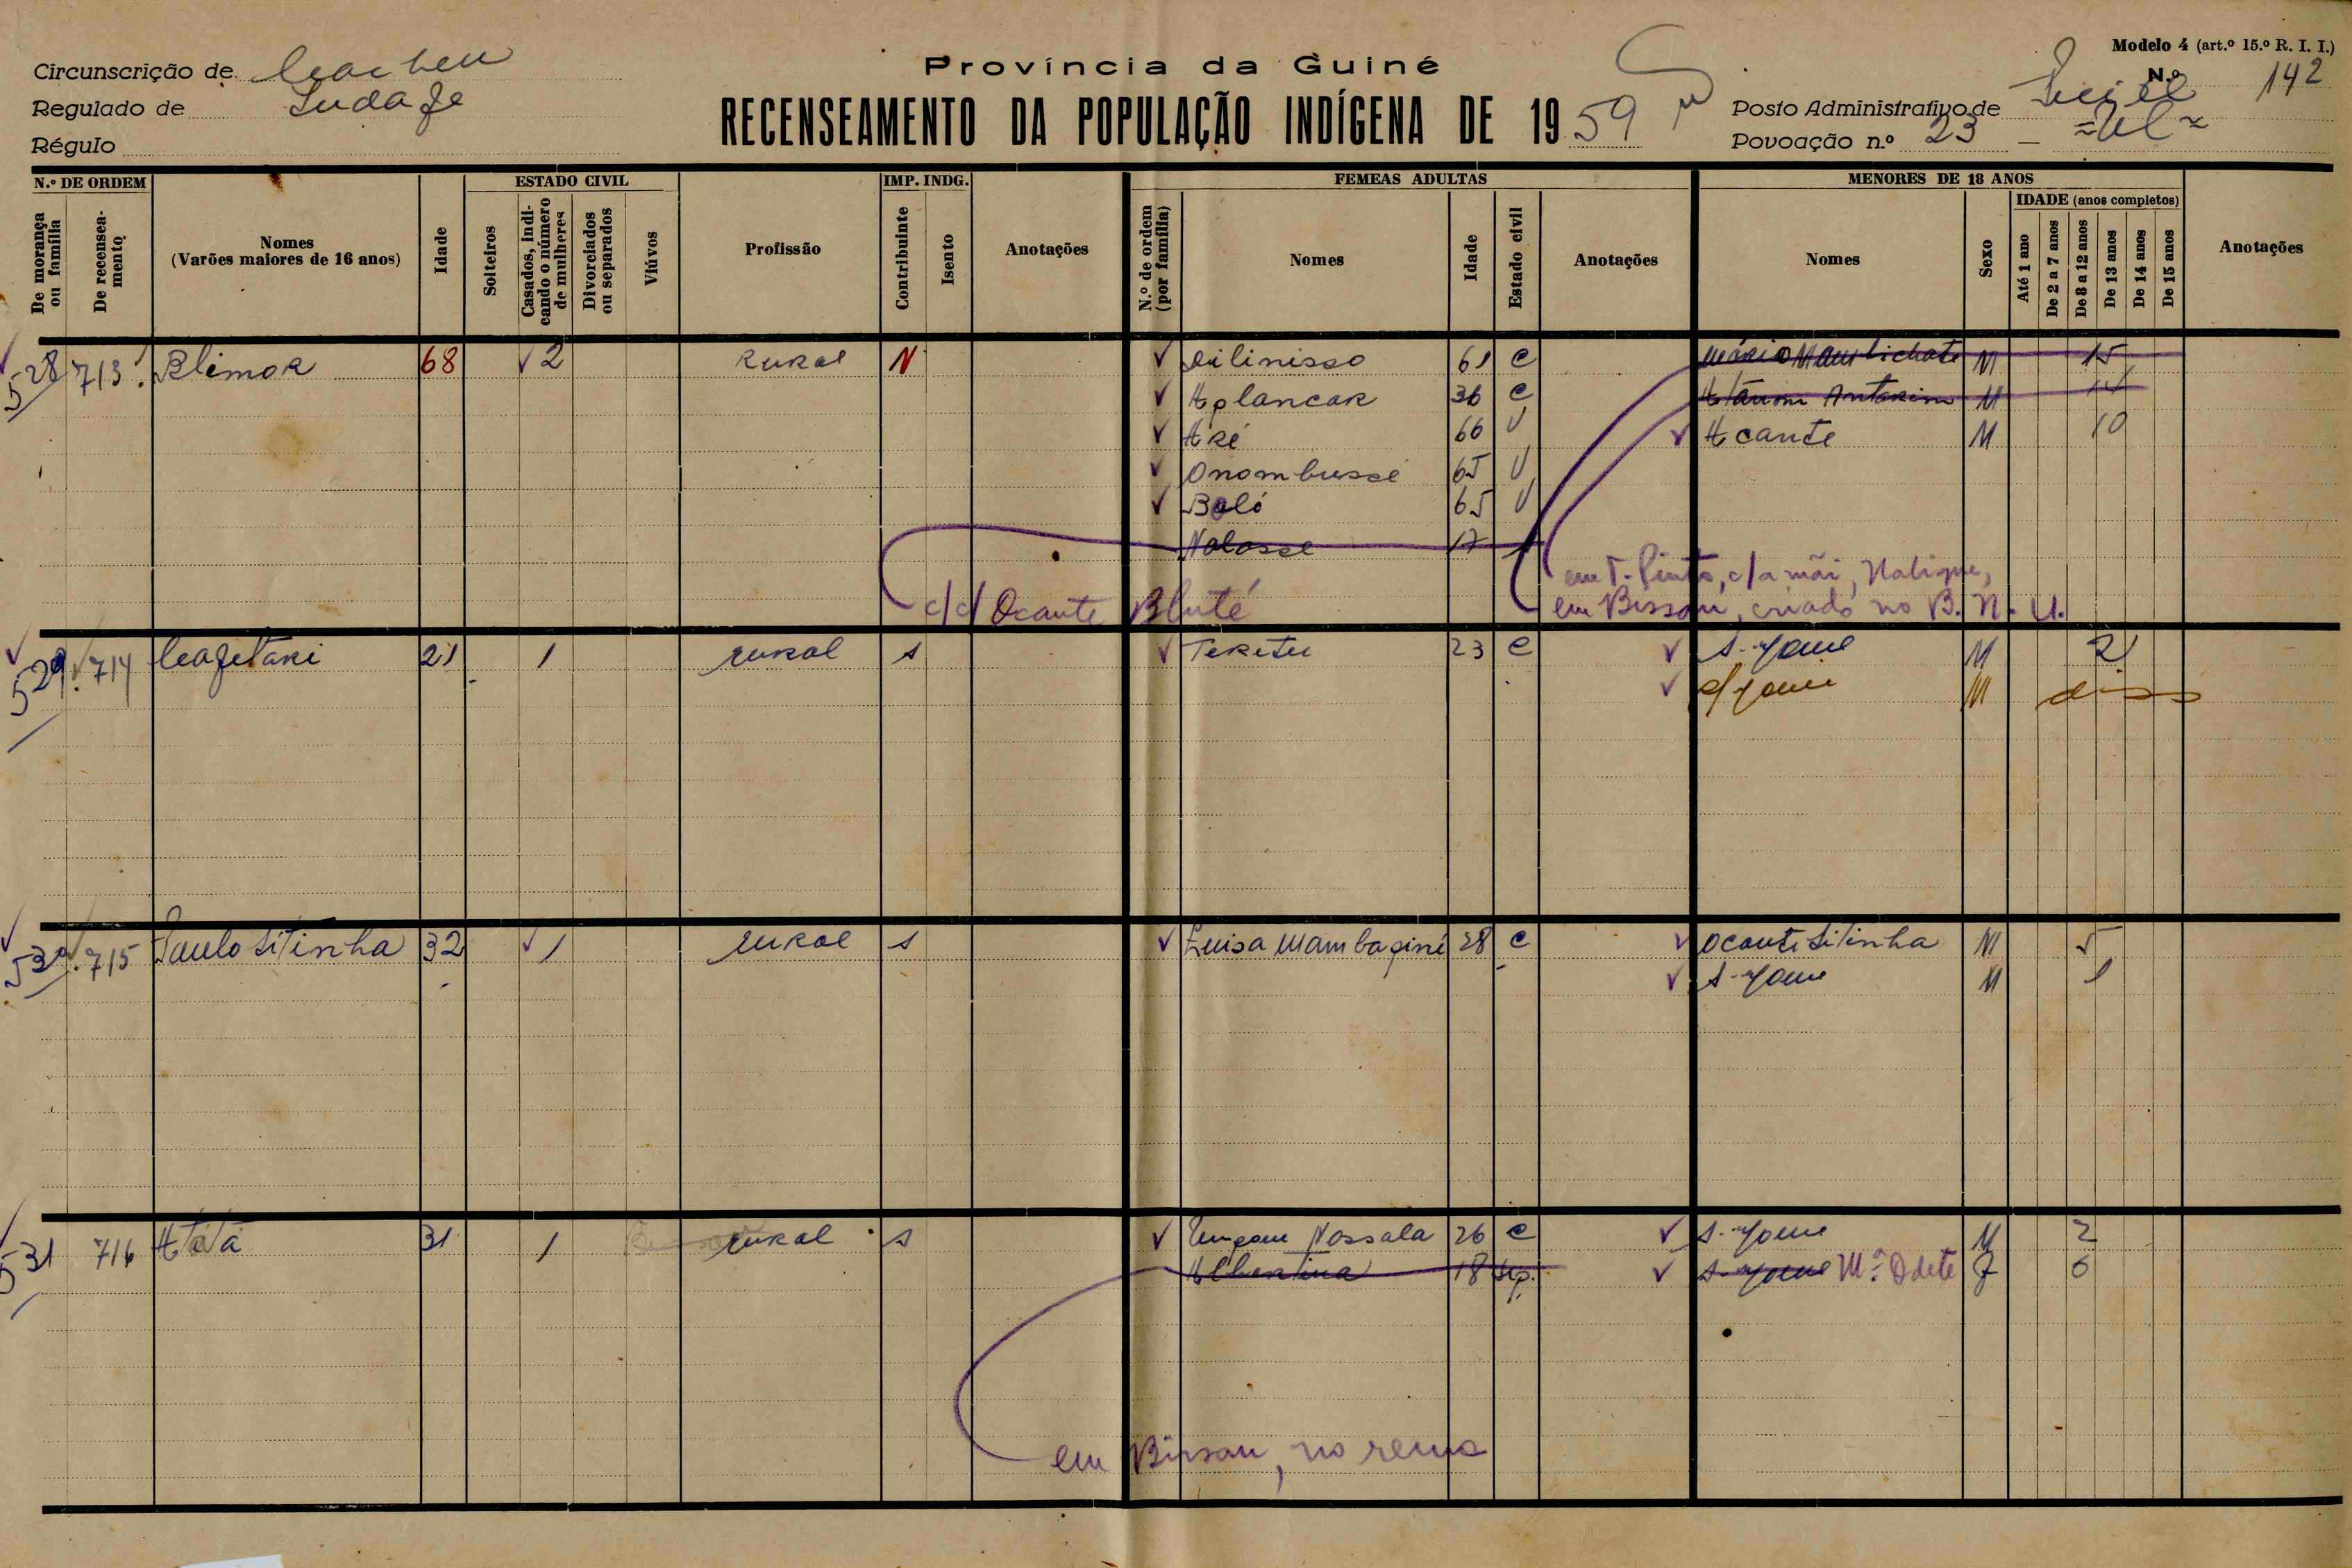 Modelo 4 (art.º 15.º R. I. I.)
Circunscrição de Cacheu
Província da Guiné
N.º 142
Regulado de
RECENSEAMENTO DA POPULAÇÃO INDÍGENA DE 1959
Posto Administrativo de
Régulo
Povoação n.º 23
N.º DE ORDEM
De morança ou família
De recenseamento
Nomes
(Varões maiores de 16 anos)
Idade
ESTADO CIVIL
Solteiros
Casados, indicando o número de mulheres
Divorciados ou separados
Viúvos
Profissão
IMP. INDG.
Contribuinte
Isento
Anotações
FEMEAS ADULTAS
N.º de ordem (por família)
Nomes
Idade
Estado civil
Anotações
MENORES DE 18 ANOS
Nomes
Sexo
IDADE (anos completos)
Até 1 ano
De 2 a 7 anos
De 8 a 12 anos
De 13 anos
De 14 anos
De 15 anos
Anotações
528 713 Blimor 68 2 Rural N Dilinisso 61 C Mário Mambichate M 15
Aplancar 36 C M 14
Aré 66 V Acante M 10
Onombussé 65 V
Baló 65 V
Nalosse 17
em T. Pinto, c/a mãi, Nalique,
c/c/ Ocante Bluté
em Bissau, criado no B. N. U.
529 714 21 1 rural s Teritu 23 C s-nome M 2
s/nome M dias
530 715 Paulo Sitinha 32 1 rural s Luisa Mambaginé 28 C Ocante Sitinha M 5
s-nome M 1
531 716 Atátá 31 1 rural s Nossala 26 C s-nome M 2
Albertina 18 sep. s-nome M.ª Odete F 6
em Bissau, no reino